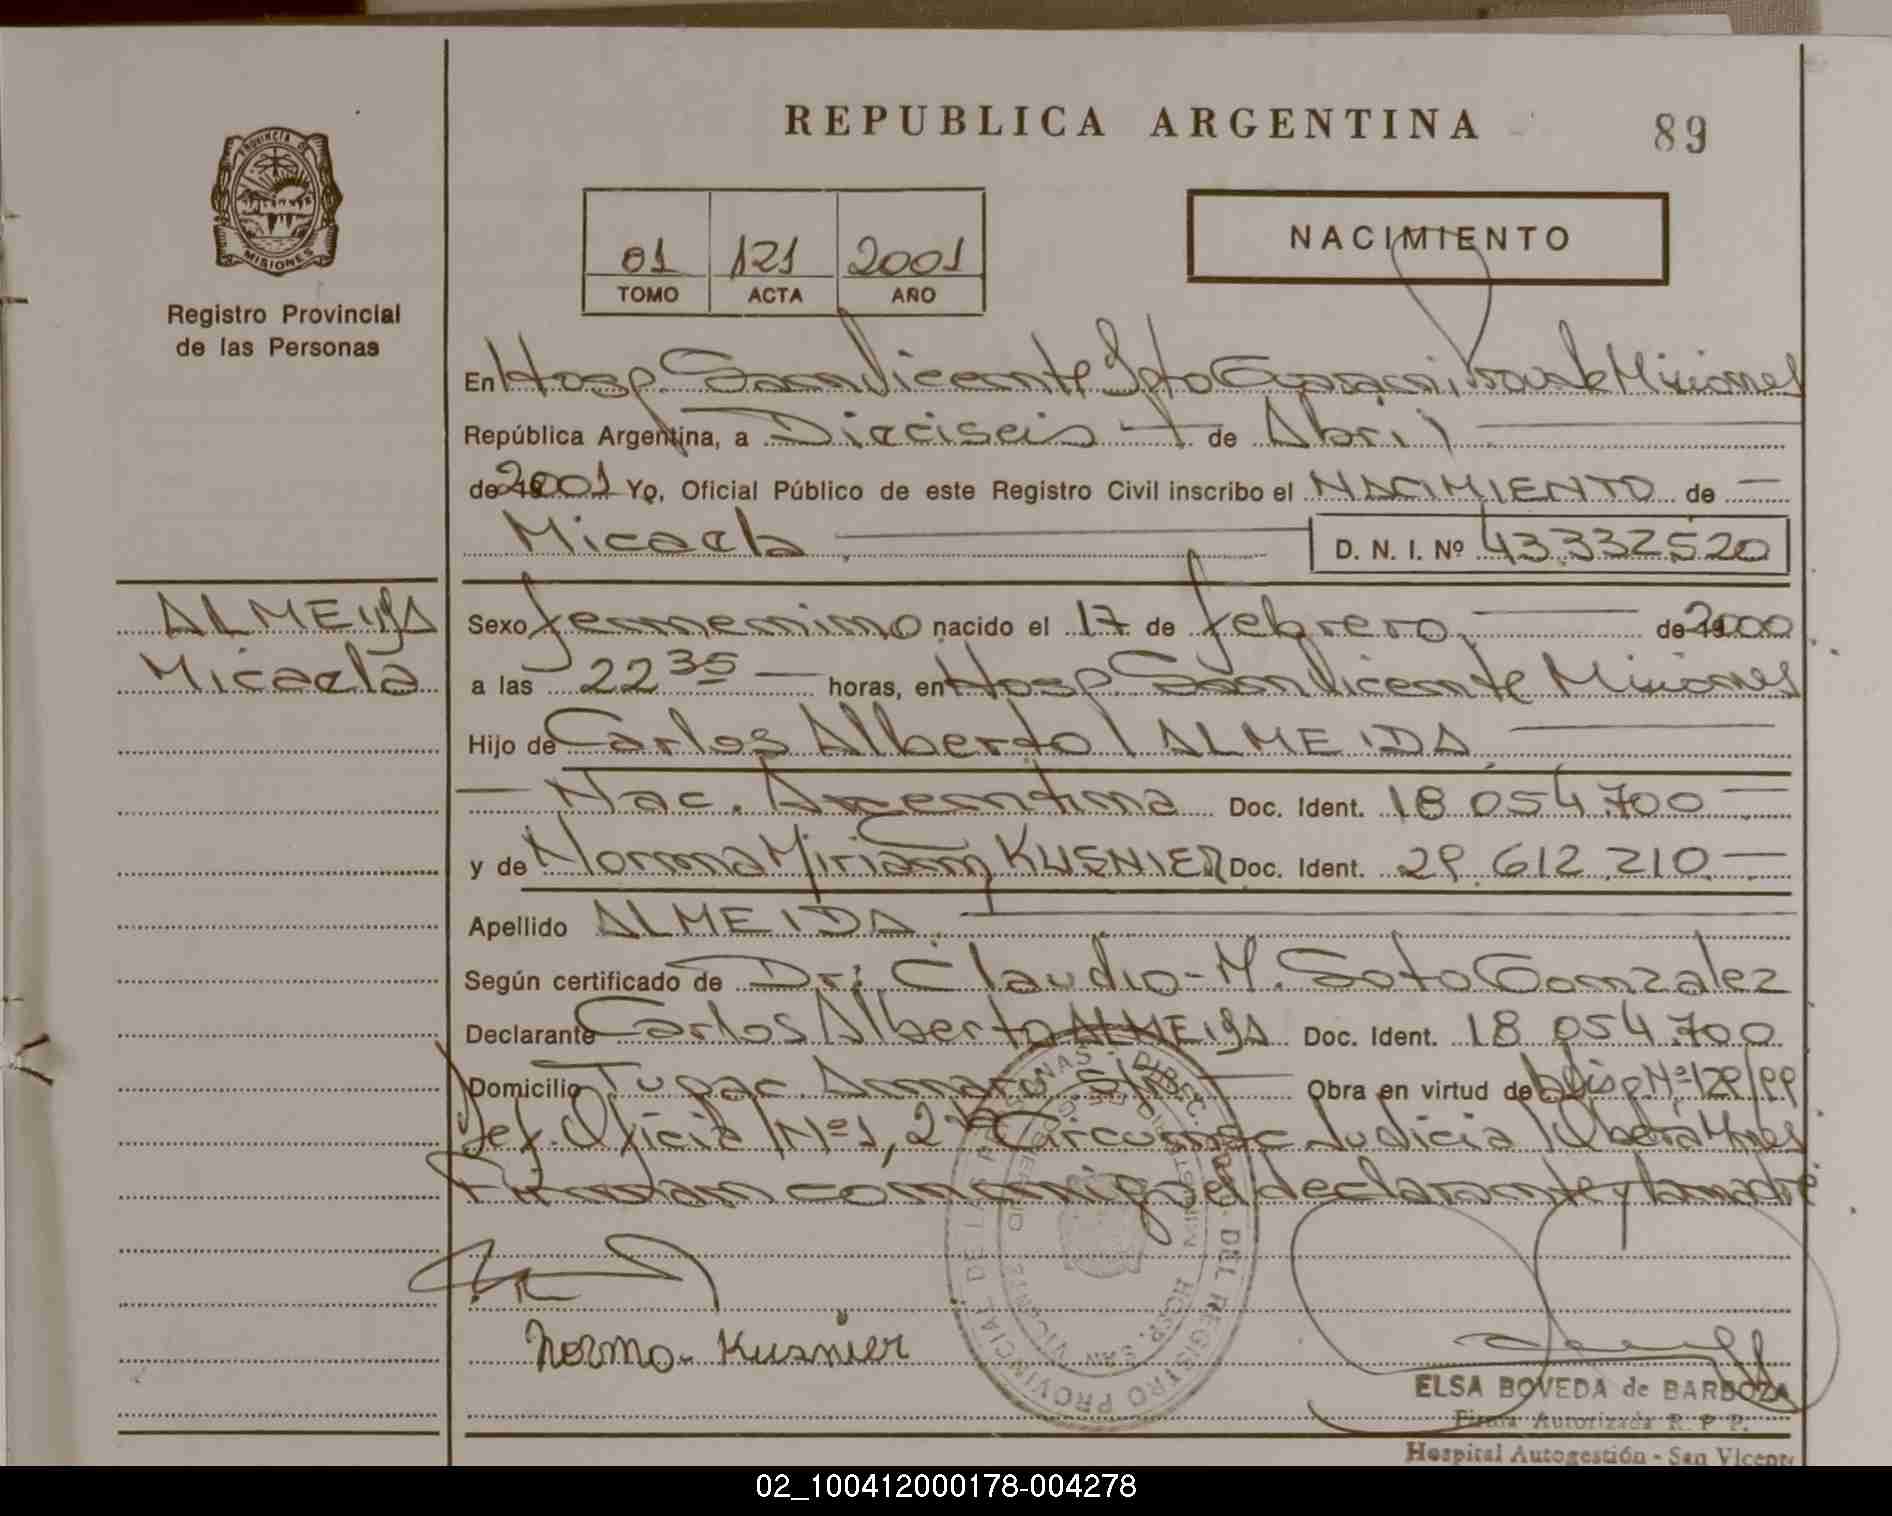 REPUBLICA ARGENTINA
89
PROVINCIA DE
MISIONES
Registro Provincial
de las Personas
01 121 2001
TOMO ACTA AÑO
NACIMIENTO
En Hosp. San Vicente Dpto Guarani, Prov. de Misiones
República Argentina, a Dieciseis de Abril
de 2001 Yo, Oficial Público de este Registro Civil inscribo el NACIMIENTO de
Micaela D. N. I. Nº 43.332520
ALMEIDA
Micaela
Sexo femenino nacido el 17 de febrero de 2000
a las 22 35 horas, en Hosp. San Vicente Misiones
Hijo de Carlos Alberto ALMEIDA
Nac. Argentina Doc. Ident. 18.054.700
y de Norma Miriam KUSNIER Doc. Ident. 29.612.210
Apellido ALMEIDA
Según certificado de Dr. Claudio M. Soto Gonzalez
Declarante Carlos Alberto ALMEIDA Doc. Ident. 18.054.700
Domicilio Tupac Amaru S/Nº Obra en virtud de Disp. Nº 129/99
Def. Oficial Nº 1, 2da Circunsc. Judicial Oberá Mnes
Firman conmigo el declarante y la madre
Norma Kusnier
ELSA BOVEDA de BARBOZA
Firma Autorizada R. P. P.
Hospital Autogestión - San Vicente
02_100412000178-004278